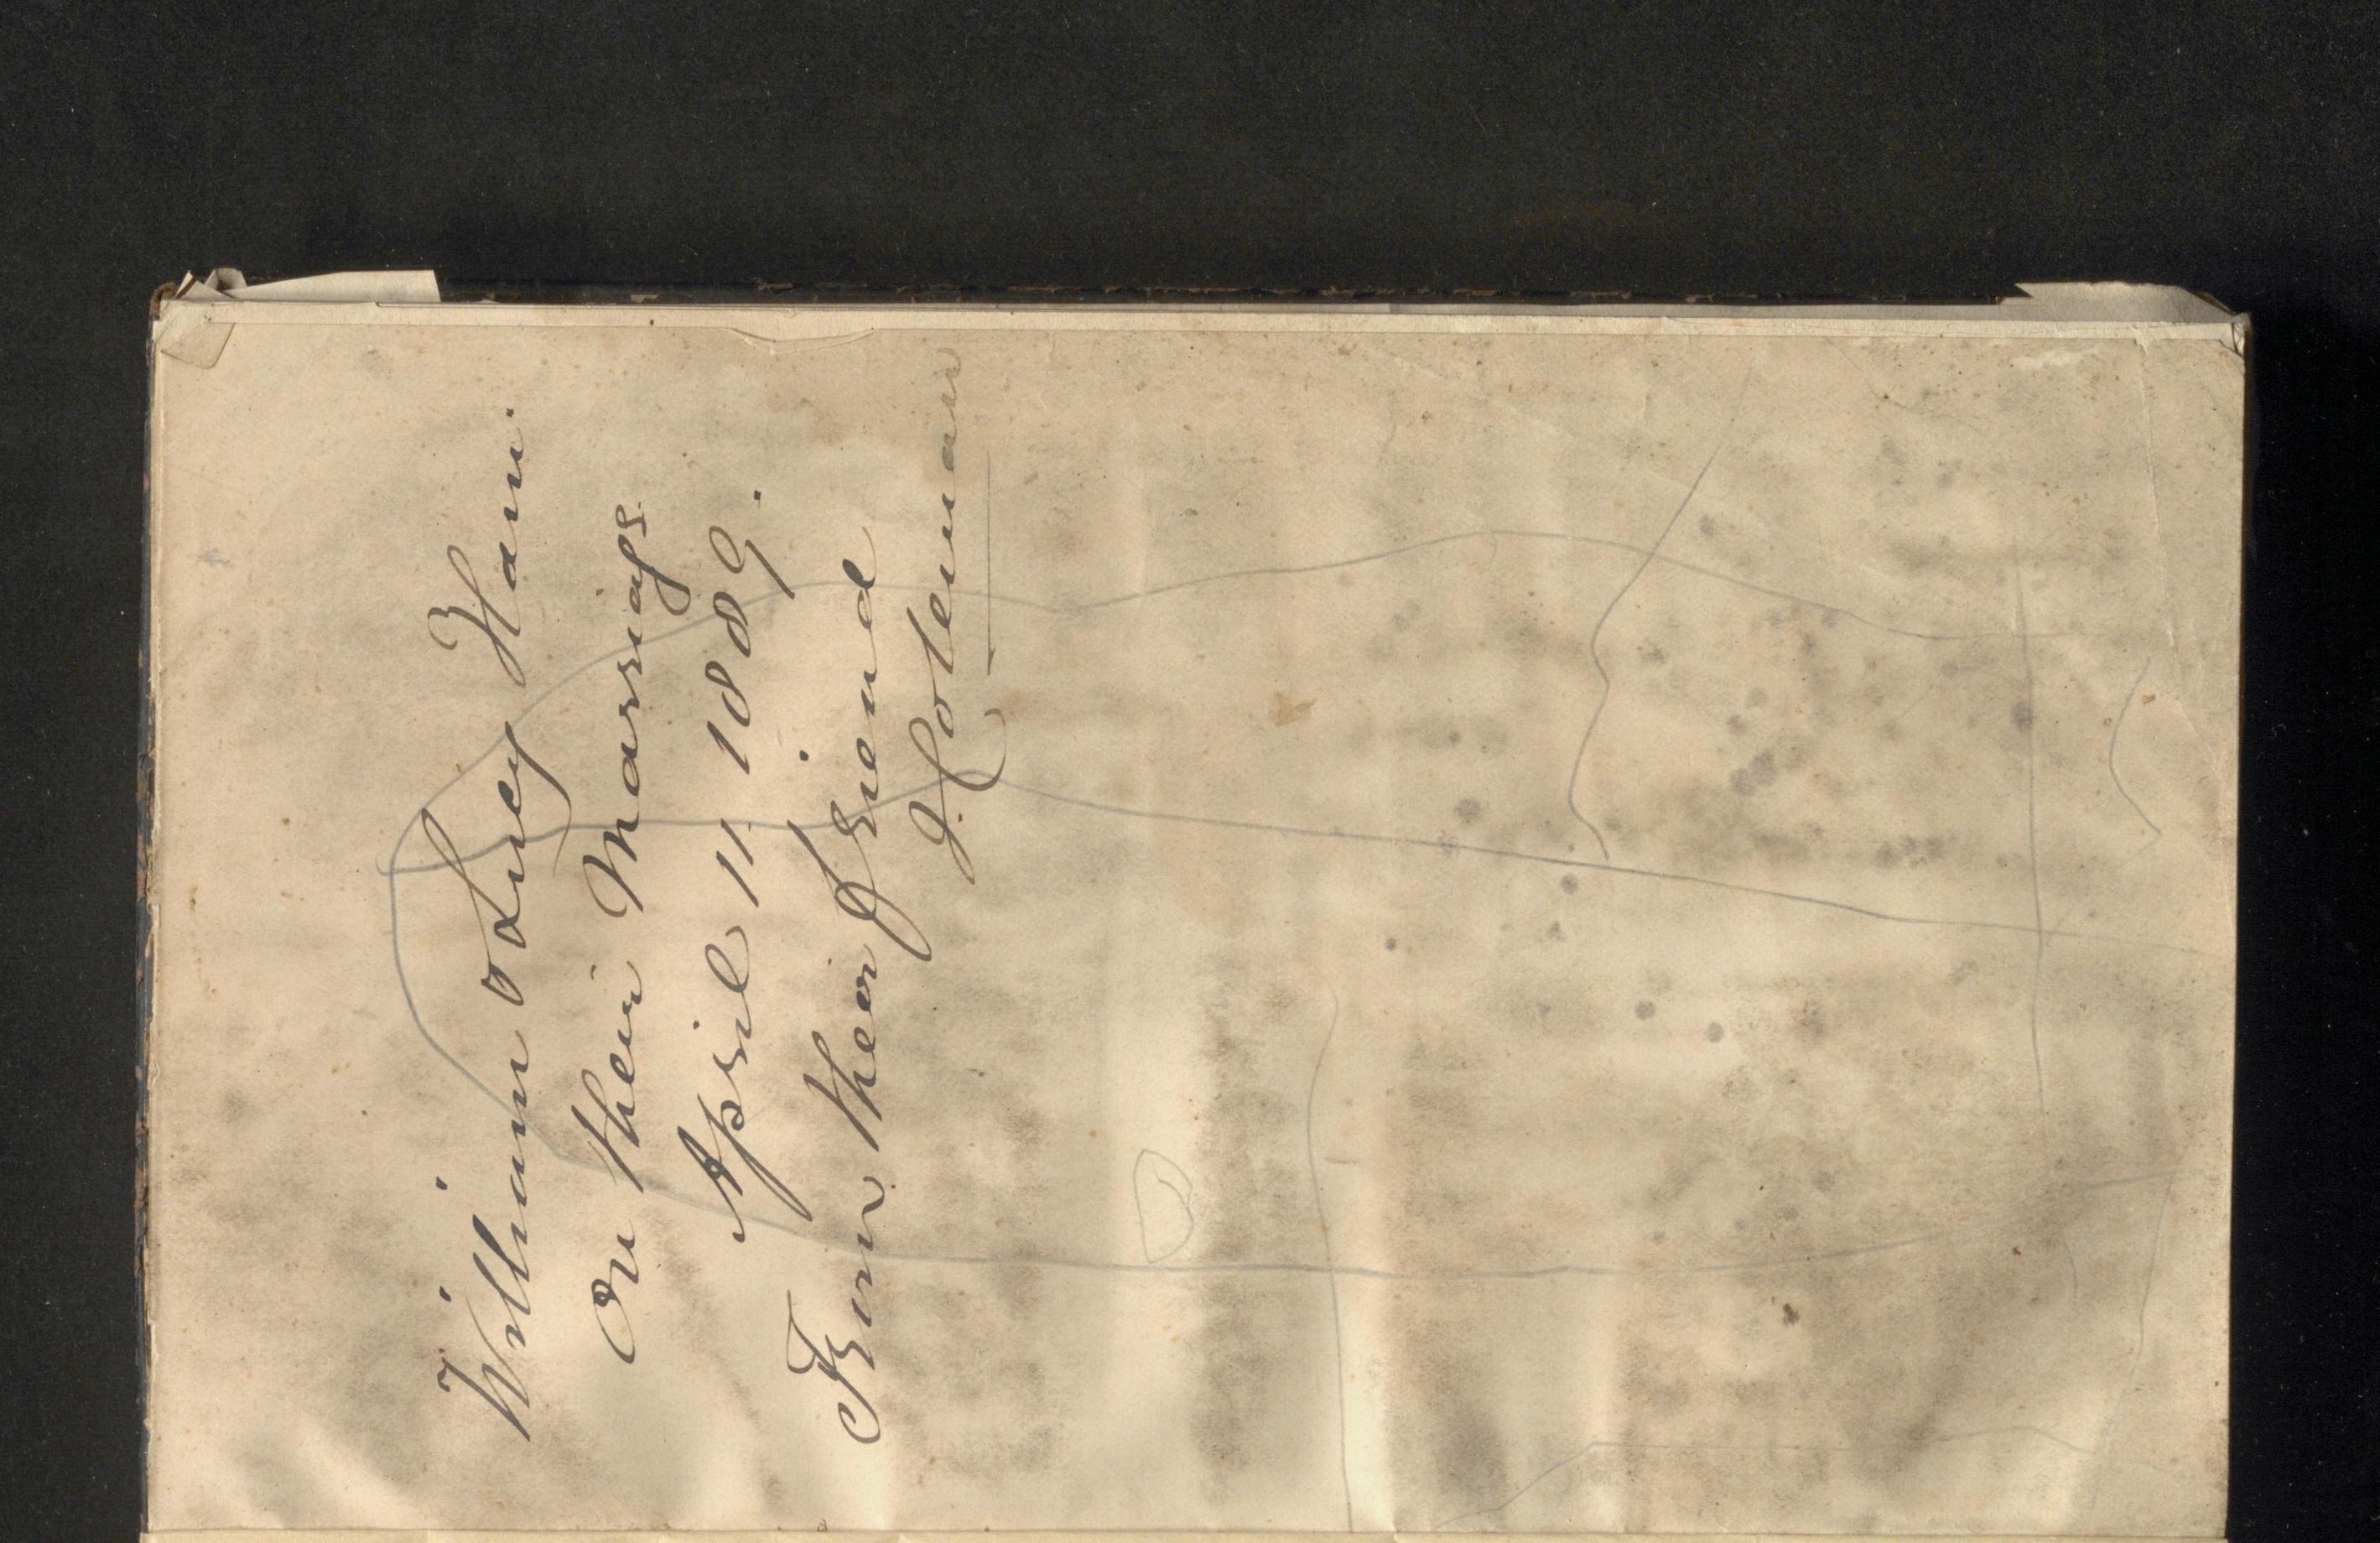 William & Lucy Ham.
On their Marriage
April 11. 1889.
From their friend
J. Coleman